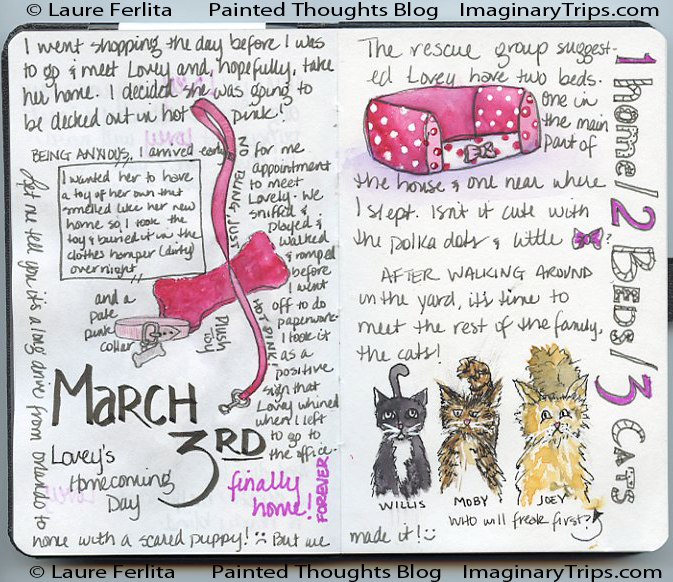 © Laure Ferlita    Painted Thoughts Blog    ImaginaryTrips.com
I went shopping the day before I was
to go & meet Lovey and, hopefully, take
her home. I decided she was going to
be decked out in hot pink!
BEING ANXIOUS, I arrived early for my
appointment
to meet
Lovely. We
sniffed &
played &
walked
& romped
before
I went
off to do
paperwork.
I took it
as a
positive
sign that
Lovey whined
when I left
to go to
the office.
I wanted her to have
a toy of her own that
smelled like her new
home so I took the
toy & buried it in the
clothes hamper (dirty)
overnight
NO BLING, JUST
HOT PINK!
and a
pale
pink
collar
Plush
toy
MARCH
3RD
Lovey's
Homecoming
Day
finally
home!
FOREVER
Let me tell you it's a long drive from Orlando to
home with a scared puppy! But we
made it!
The rescue group suggest-
ed Lovey have two beds.
One in
the main
part of
the house & one near where
I slept. Isn't it cute with
the polka dots & little ?
AFTER WALKING AROUND
in the yard, it's time to
meet the rest of the family,
the cats!
WILLIS
MOBY
JOEY
WHO will freak first?
1 home/2 BEDS/3 CATS
© Laure Ferlita    Painted Thoughts Blog    ImaginaryTrips.com